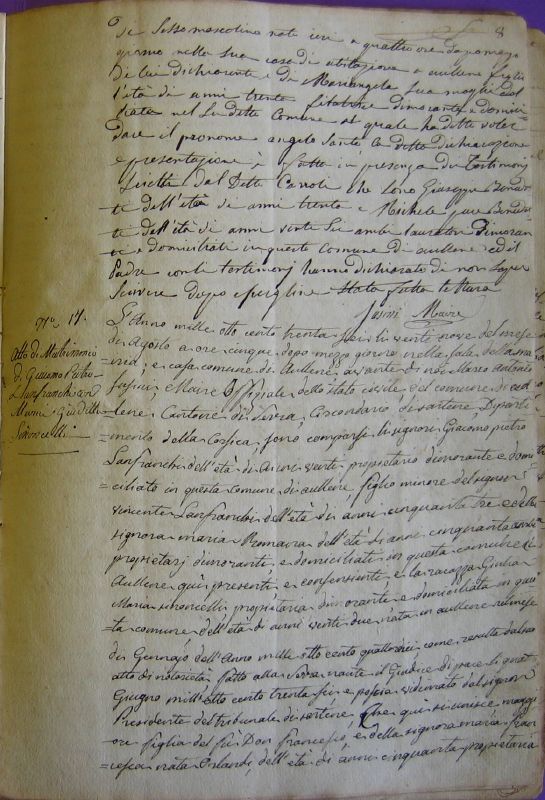 8
di Sesso mascolino nato ieri a quattro ore dopo mezzo
giorno nella sua casa di abitazione a aullene figlio
di lui dichiarante e di Mariangela sua moglie dal
l'età di anni trenta filatrice dimorante e domici
liata nel Su detto Comune al quale ha detto voler
dare il pronome angelo Santo la detta dichiarazione
e presentazione è fatta in presenza dei testimonj
di anni trenta e Michele
dell'età di anni venti Sei ambi lavoratori dimoran
ti e domiciliati in questo Comune di aullene ed il
Padre con li testimonj hanno dichiarato di non saper
Scrivere dopo essergline Stata fatta lettura
Susini Maire
Nro 17.
Atto di Matrimonio
di Giacomo Pietro
Lanfranchi con
Simoncelli
L'Anno mille otto cento trenta sei li venti nove del mese
di Agosto a ore cinque dopo mezzo giorno nella sala della ma
=iria, e casa comune di Aullene avante di noi Marco Antonio
Susini Maire Offiziale dello stato civile del comune di Aul
=lene Cantone di Serra Circondario di Sartene Diparti
=mento della Corsica, sono comparsi li signori Giacomo pietro
Lanfranchi dell'età di Anni venti proprietario dimorante e domi
=ciliato in questa comune di aullene figlio minore del signor
vincente Lanfranchi dell'età di anni cinquanta tre e della
signora maria dell'età di anni cinquanta
proprietarj dimoranti e domiciliati in questa comune di
Aullene quì presenti, e consensienti, e la ragazza Giulia
Maria simoncelli proprietaria dimorante e domiciliata in que
=ta comune dell'età di anni venti due nata in aullene nel mese
di Gennajo dell'Anno mille otto cento quattordici come resulta dal
atto di notorietà fatto alla Serra avante il Giudice di pace li
Giugno mill'otto cento trenta sei e poscia vidimato dal signor
Presidente del tribunale di sartene, che quì si unisce maggi
ore figlia del fù Don francesco, e della signora maria
=cesca nata Orlandi, dell'età di anni cinquanta proprietaria